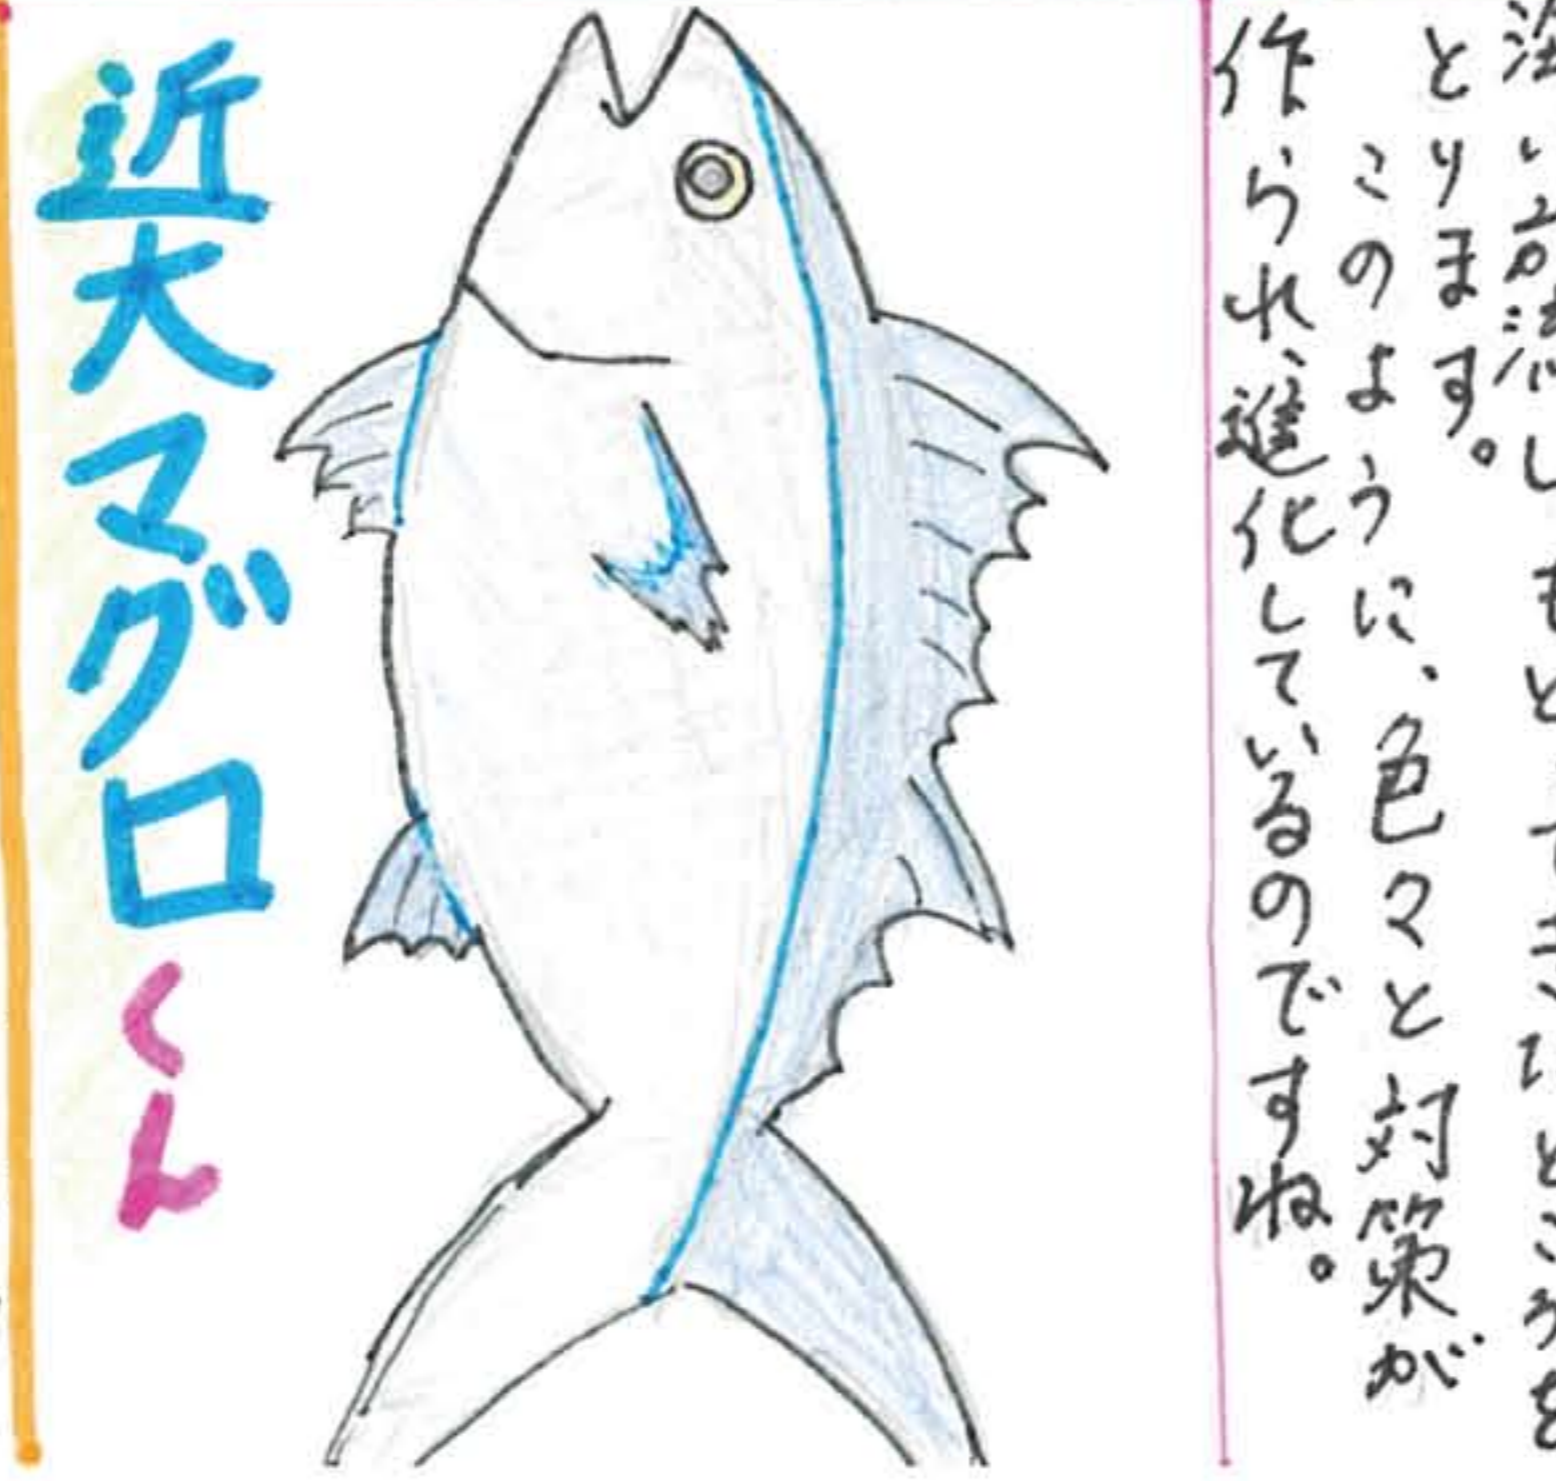 とります。
このように、色々と対策が
作られ、進化しているのですね。
近大マグロくん